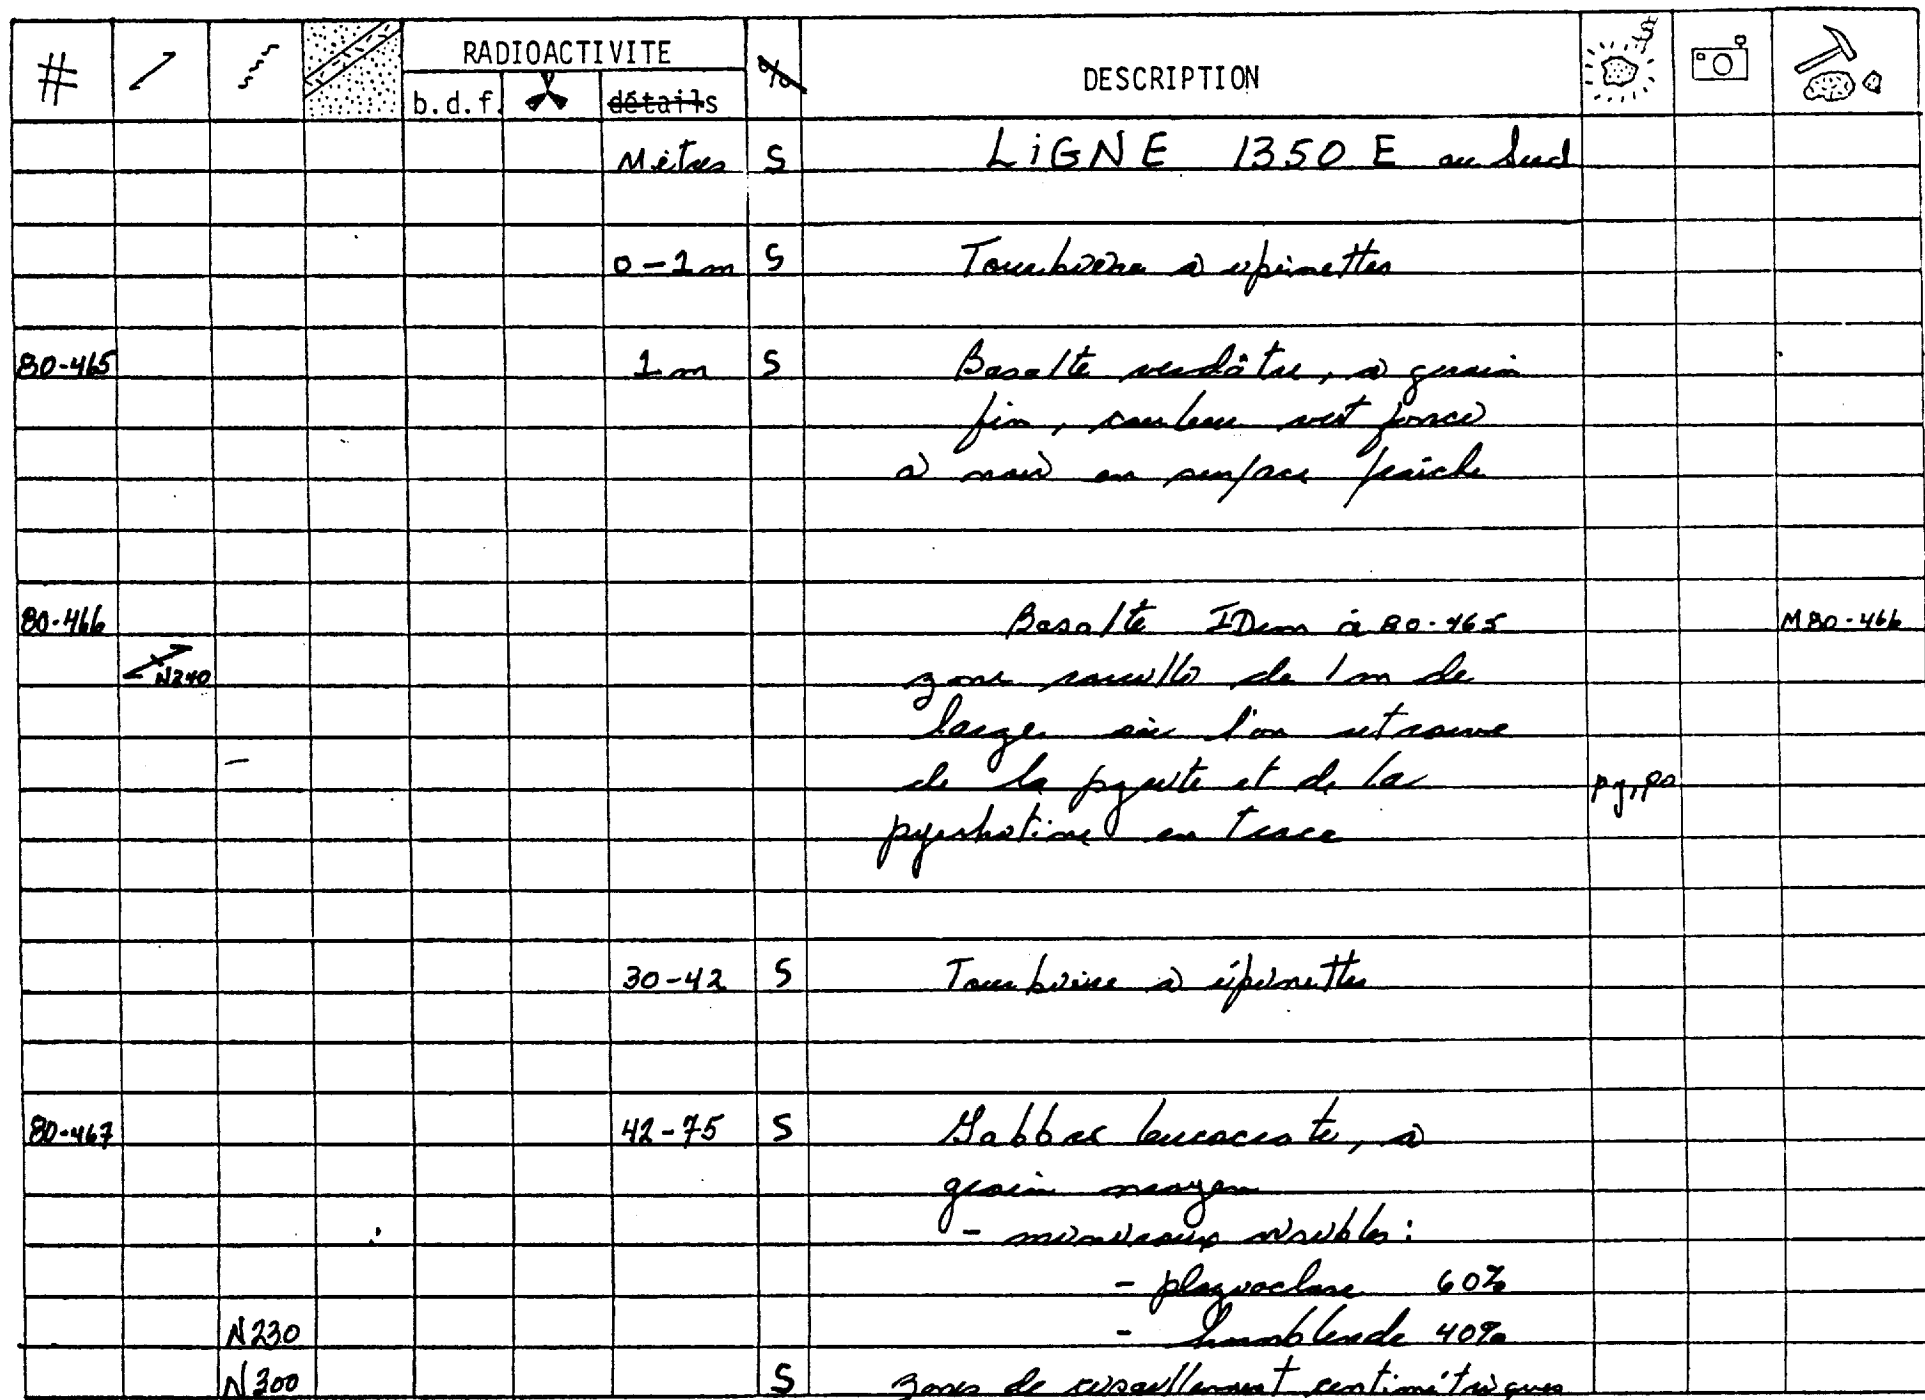 # RADIOACTIVITE % DESCRIPTION
b.d.f. détails
Mètres S LiGNE 1350 E au Sud
0-1m S Tourbière à épinettes
80-465 1m S Basalte verdâtre, à grain
fin, couleur vert foncé
à noir en surface fraîche
80-466 Basalte IDem à 80-465 M80-466
N240 zone rouillée de 1m de
large où l'on retrouve
de la pyrite et de la py, po
pyrrhotine en trace
30-42 S Tourbière à épinettes
80-467 42-75 S Gabbro leucocrate, à
grain moyen
- minéraux visibles:
- plagioclase 60%
N230 - hornblende 40%
N300 S zones de cisaillement centimétriques